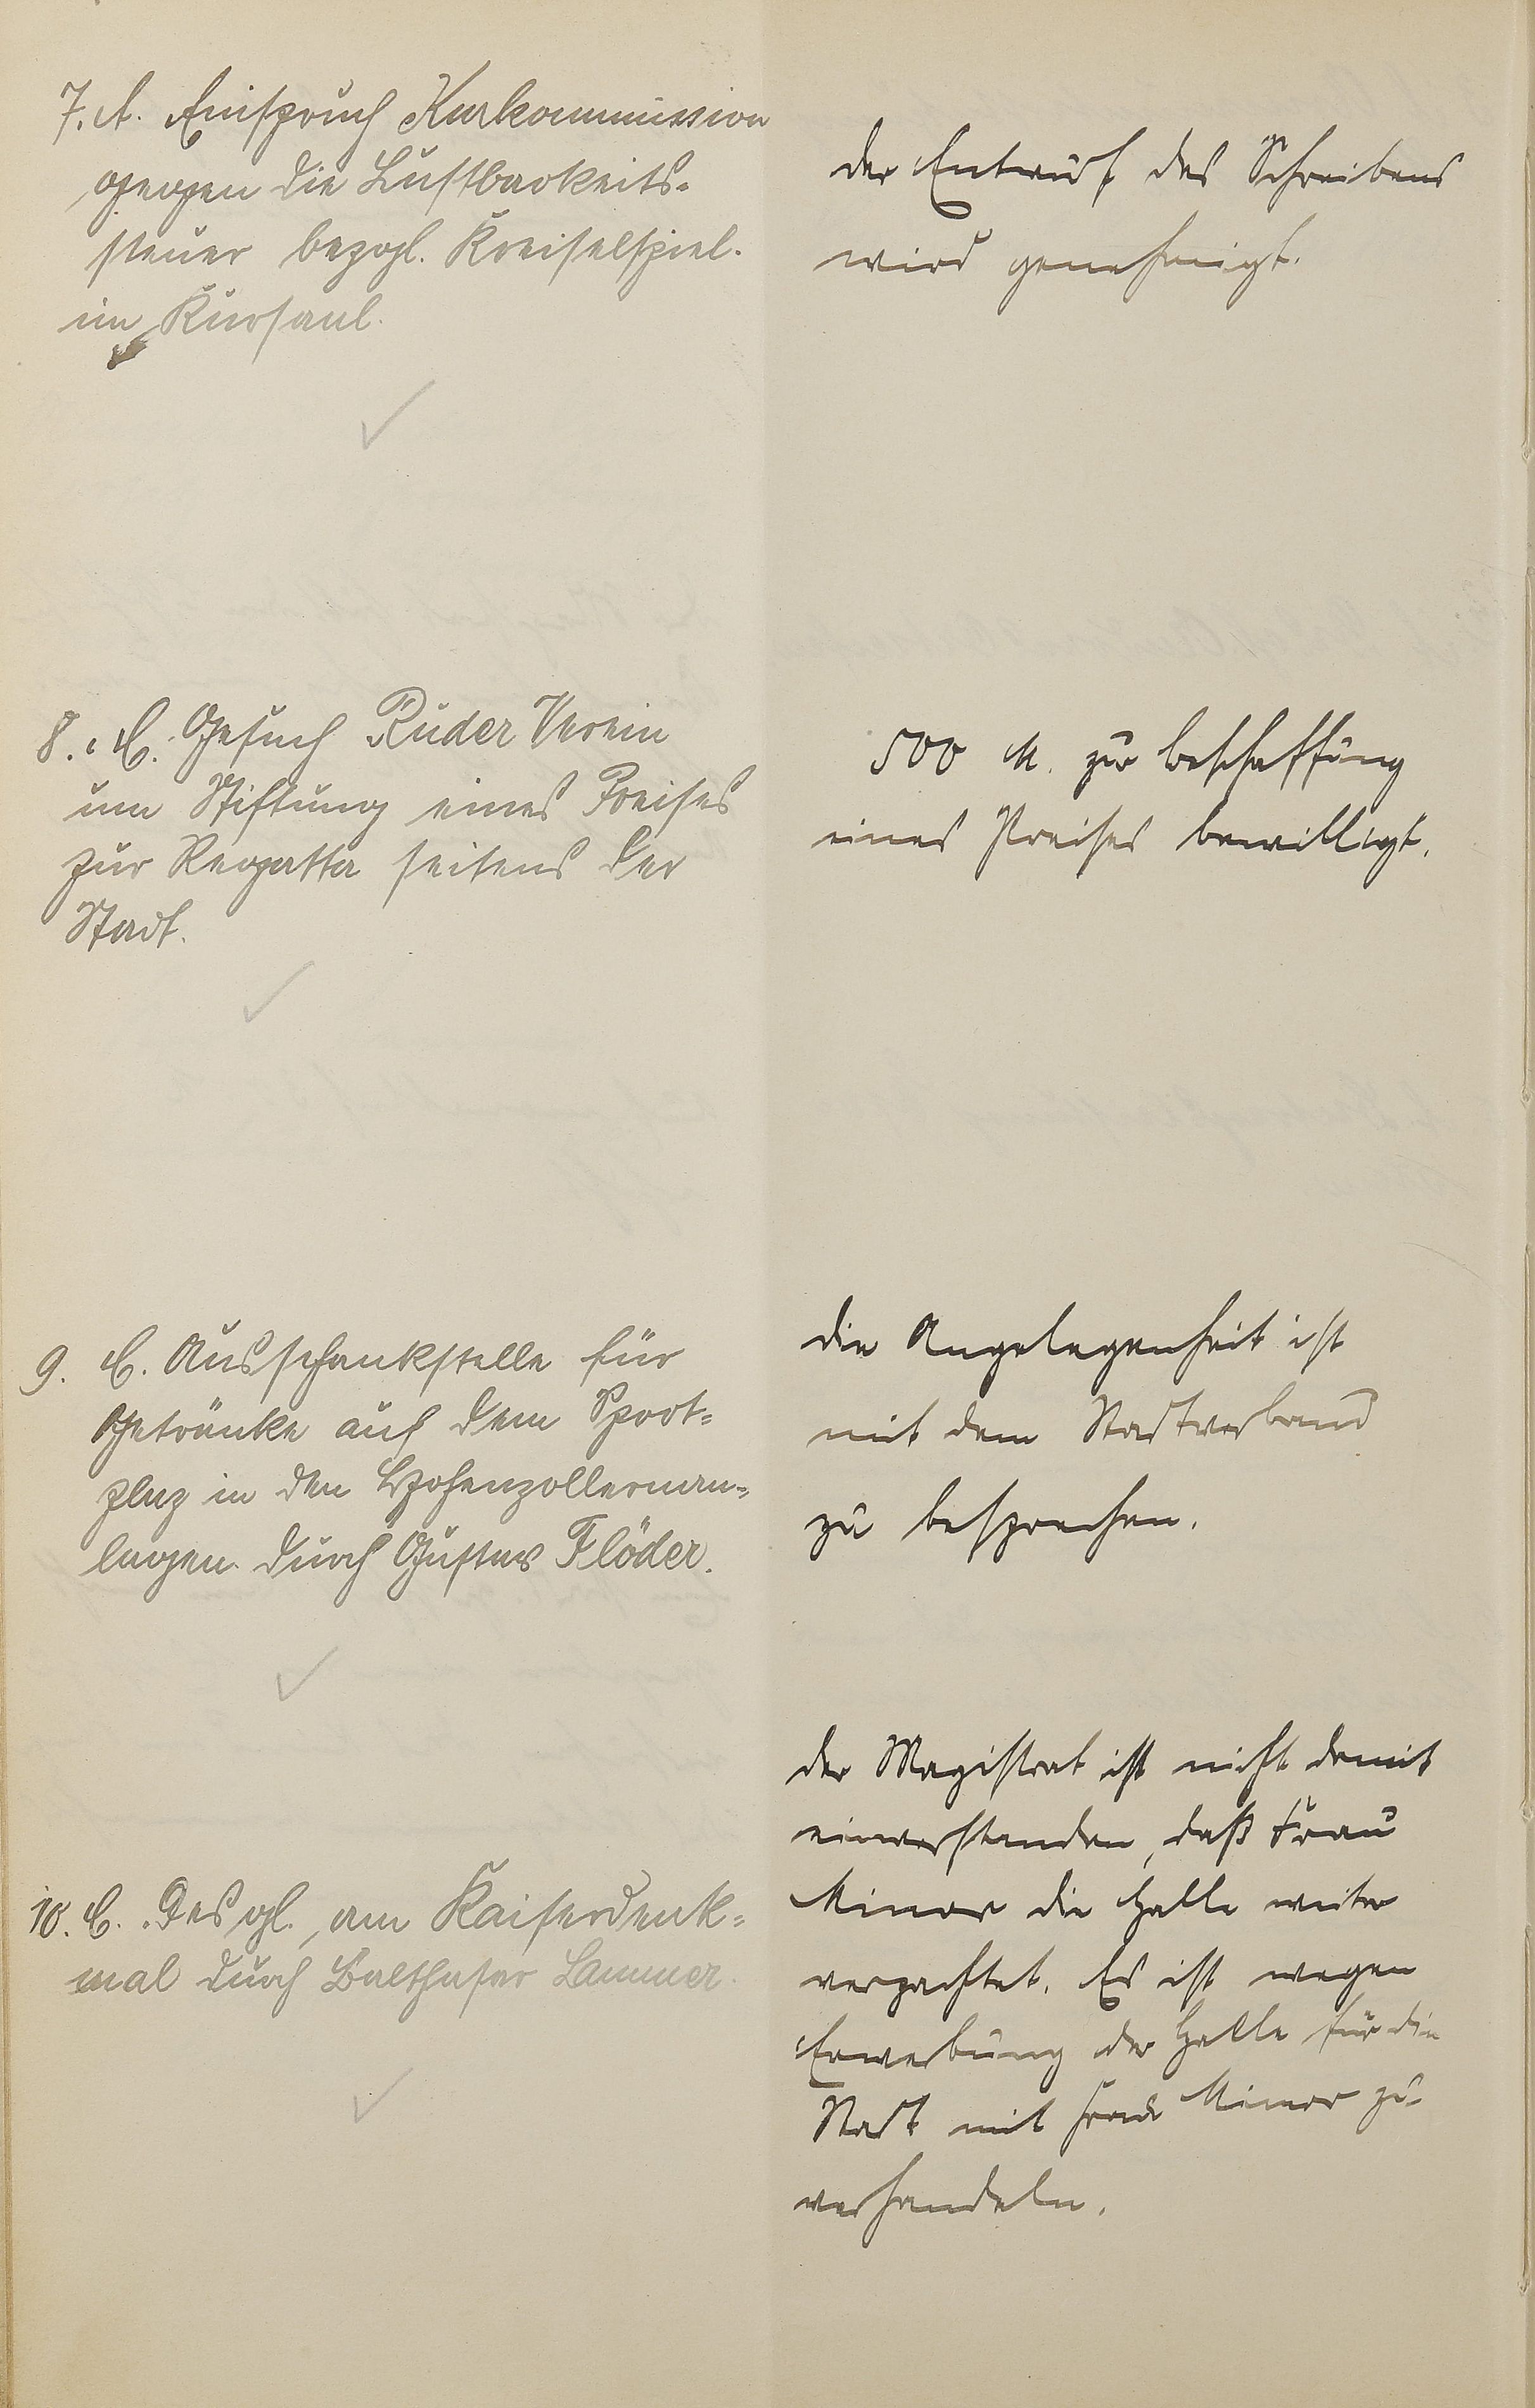 7. A. Einspruch Kurkommission
gegen die Lustbarkeits-
steuer bezgl. Kreiselspiel.
im Kursaal.
der Entwurf des Schreibens
wird genehmigt.
8. C. Gesuch Ruder Verein
um Stiftung eines Preises
zur Regatta seitens der
Stadt.
500 M. zur Beschaffung
eines Preises bewilligt.
9. C. Ausschankstelle für
Getränke auf dem Sport=
plaz in den Hohenzollernan=
lagen durch Gustav Flöder.
die Angelegenheit ist
mit dem Stadtverband
zu besprechen.
10. C. Desgl., am Kaiserdenk=
mal durch Balthasar Lammer.
der Magistrat ist nicht damit
einverstanden, daß Frau
Minor die Halle weiter
verpachtet. Es ist wegen
Erwerbung der Halle für die
Stadt mit Frau Minor zu
verhandeln.